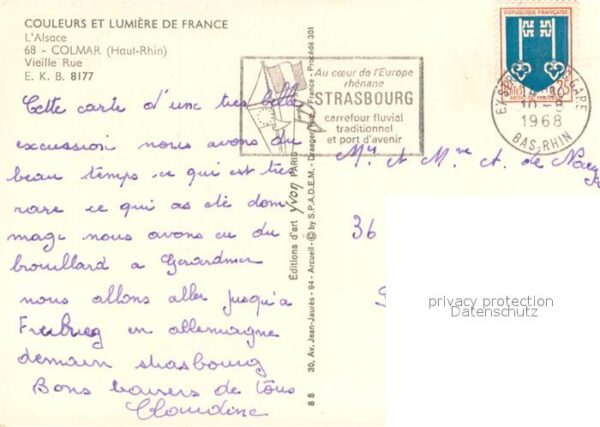 COULEURS ET LUMIÈRE DE FRANCE
L'Alsace
68 - COLMAR (Haut-Rhin)
Vieille Rue
E. K. B. 8177
Cette carte d'une tres belle
excussion nous avons du
beau temps ce qui est tres
rare ce qui as été dom
mage nous avons eu du
brouillard a Gerardmer
nous allons aller jusqu'a
Freibueg en allemagne
demain strasbourg
Bons baisers de tous
Claudine
Au cœur de l'Europe
rhénane
STRASBOURG
carrefour fluvial
traditionnel
et port d'avenir
REPUBLIQUE FRANÇAISE
1968
BAS-RHIN
Mr et Mme A. de
36
Éditions d'art yvon PARIS
30, Av. Jean-Jaurès - 94 - Arcueil - © by S.P.A.D.E.M. - France - Procédé 301
privacy protection
Datenschutz